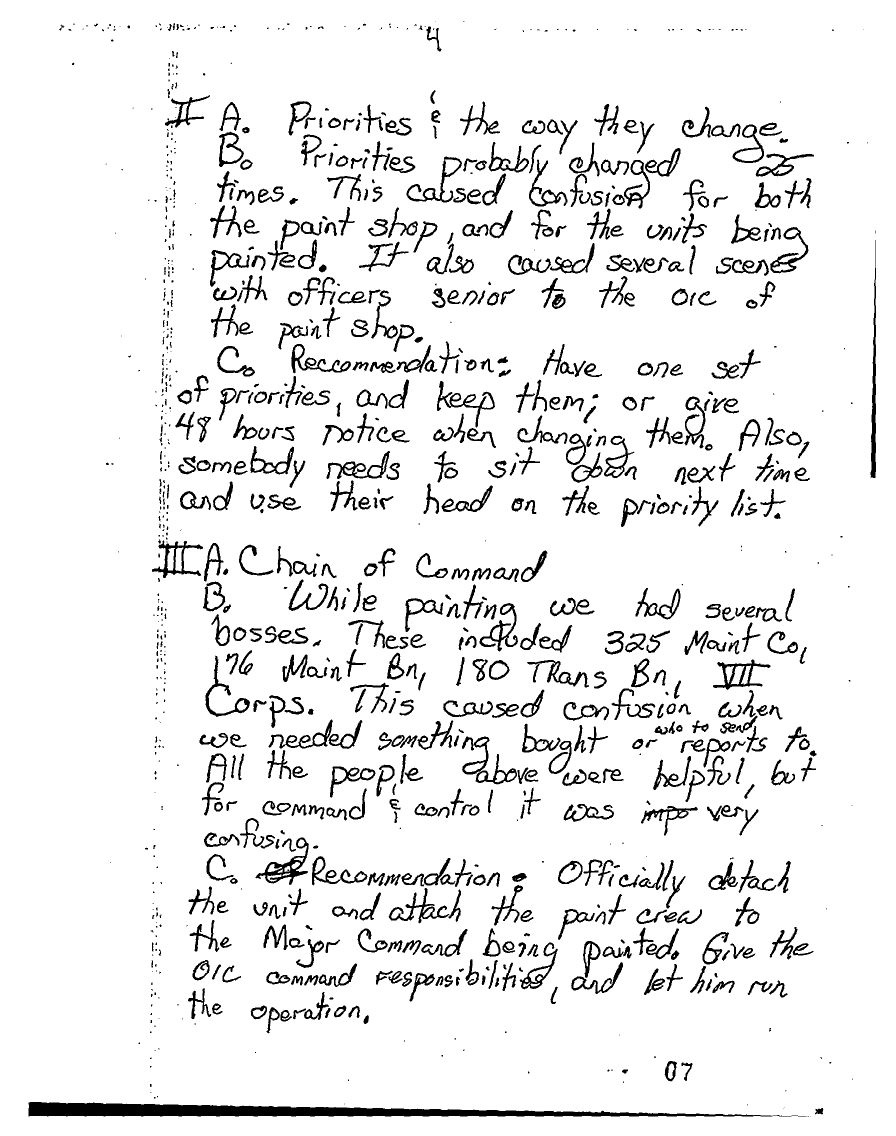 4
II A. Priorities & the way they change.
B. Priorities probably changed 25
times. This caused confusion for both
the paint shop, and for the units being
painted. It also caused several scenes
with officers senior to the OIC of
the paint shop.
C. Reccommendation: Have one set
of priorities, and keep them; or give
48 hours notice when changing them. Also,
somebody needs to sit down next time
and use their head on the priority list.
III A. Chain of Command
B. While painting we had several
bosses. These included 325 Maint Co,
176 Maint Bn, 180 Trans Bn, VII
Corps. This caused confusion when
we needed something bought or who to send reports to.
All the people above were helpful, but
for command & control it was impo very
confusing.
C. Recommendation: Officially detach
the unit and attach the paint crew to
the Major Command being painted. Give the
OIC command responsibilities, and let him run
the operation.
07